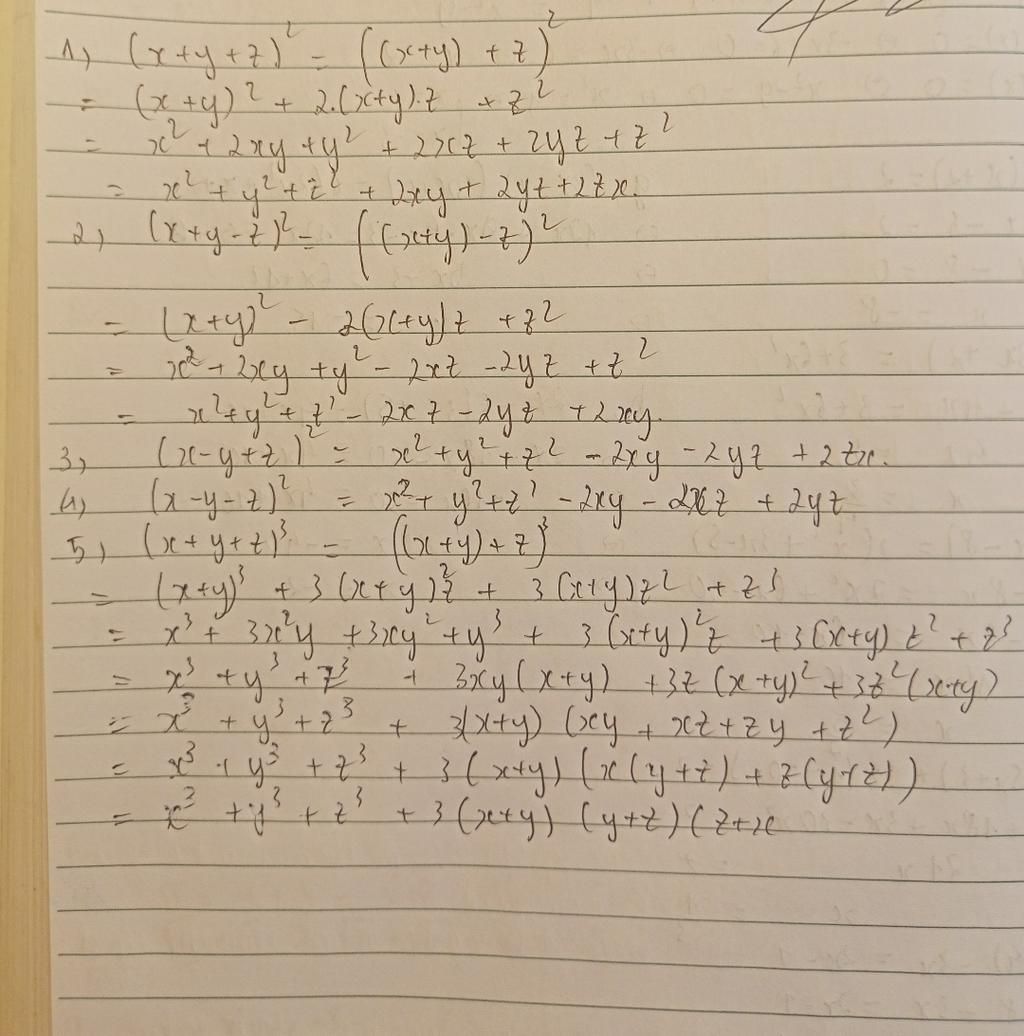 1) (x+y+z)² = ((x+y) + z)²
= (x+y)² + 2.(x+y).z + z²
= x² + 2xy + y² + 2xz + 2yz + z²
= x² + y² + z² + 2xy + 2yz + 2zx.
2) (x+y-z)² = ((x+y) - z)²
= (x+y)² - 2(x+y)z + z²
= x² + 2xy + y² - 2xz - 2yz + z²
= x² + y² + z² - 2xz - 2yz + 2xy.
3) (x-y+z)² = x² + y² + z² - 2xy - 2yz + 2zx.
4) (x-y-z)² = x² + y² + z² - 2xy - 2xz + 2yz
5) (x+y+z)³ = ((x+y)+z)³
= (x+y)³ + 3(x+y)²z + 3(x+y)z² + z³
= x³ + 3x²y + 3xy² + y³ + 3(x+y)²z + 3(x+y)z² + z³
= x³ + y³ + z³ + 3xy(x+y) + 3z(x+y)² + 3z²(x+y)
= x³ + y³ + z³ + 3(x+y)(xy + xz + zy + z²)
= x³ + y³ + z³ + 3(x+y)(x(y+z) + z(y+z))
= x³ + y³ + z³ + 3(x+y)(y+z)(z+x